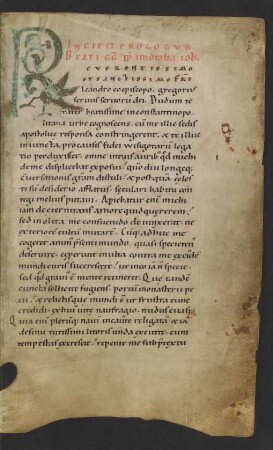 INCIPIT PROLOGUS
BEATI GG PP IN MORALIA IOB.
REUERENTISSIMO
ET SANCTISSIMO FRI
leandro coepiscopo, gregorius
seruus seruoru dei. Dudum te
frater beatissime in constantinopo
litana urbe cognoscens, cu me illic sedis
apostolice responsa constringerent, & te illuc
iniuncta pro causis fidei uisigotharu legatio
perduxisset, omne in tuis auribus qd michi
de me displicebat exposui, quia diu longeq;
conuersionis gratiam distuli, & postqua celes
ti su desiderio afflatus, seculari habitu con
tegi melius putaui. Apiebatur eni michi
iam de eternitatis amore quid quererem,
sed inolita me consuetudo deuinxerat, ne
exteriore cultu mutarem. Cuq; adhuc me
cogeret anim psenti mundo, quasi specietenus
deseruire, ceperunt multa contra me ex eiusde
mundi cura succrescere, ut in eo ia n specie,
sed qd grauius e mente retinerer. Que tande
cuncta sollicite fugiens, portum monasterii pe
tii, & relictis que mundi sunt ut frustra tunc
credidi, ex huius uite naufragio, nudus euasi.
Quia eni pleruq; naue incaute religata, & ia
de sinu tutissimi litoris unda excutit, cum
tempestas excrescit, repente me sub pretextu